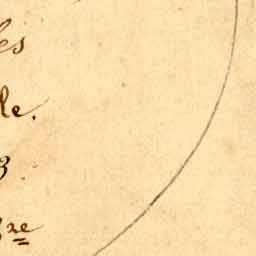 les
le.
3
re